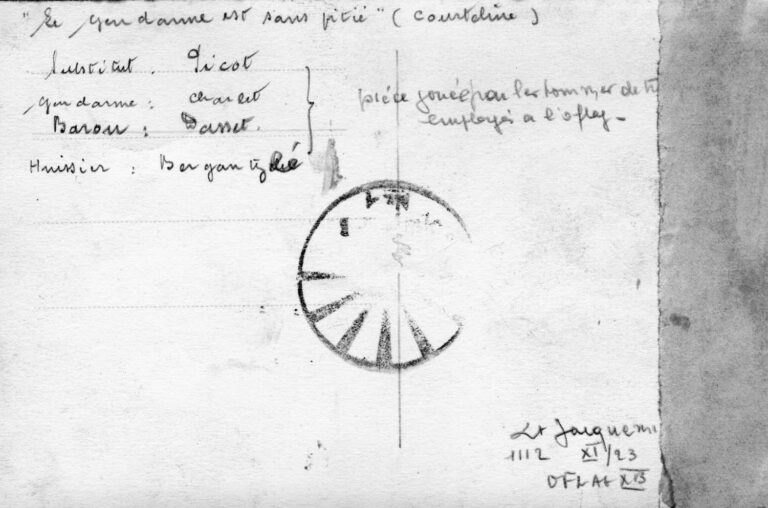 "Le gendarme est sans pitié" (Courteline)
Substitut. Picot
gendarme: charlet
Baron: Dasset.
Huissier: Bergant
pièce jouée par les hommes de tr
employés a l'oflag -
Nr. 1
Lt Jacquemi
1112 XI/23
OFLAG XIII